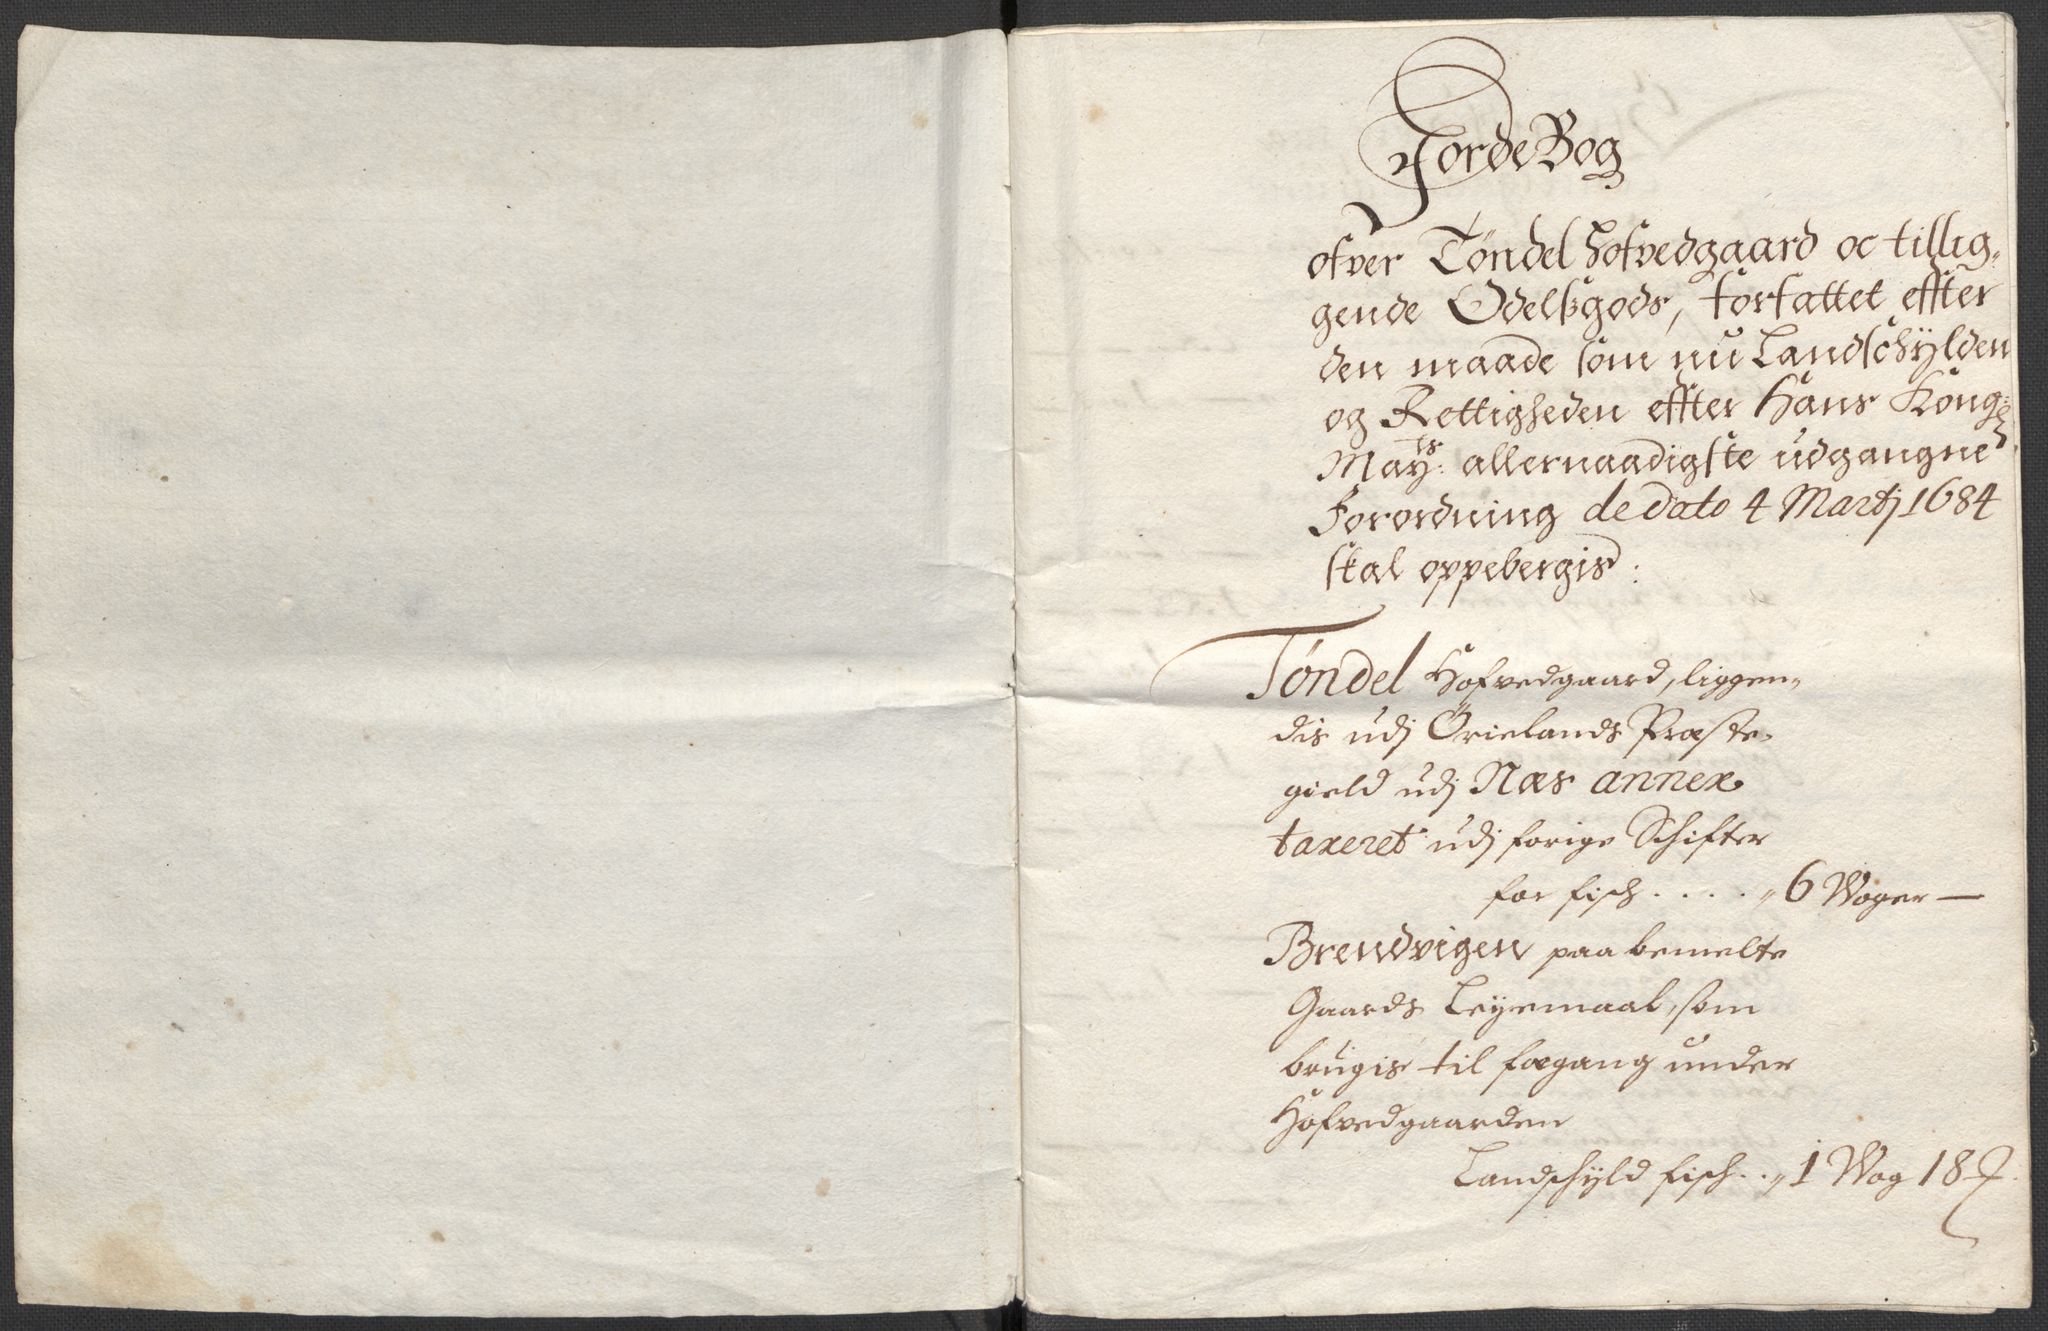 JordeBog
ofver Tøndel Hofvedgaard oc tillig„
gende Odelsgods, forfattet effter
den maade som nu Landschÿlden
og Rettigheden effter Hans Kong:
Mayts: allernaadigste udgangne
Forordning de dato 4 Martj 1684
skal oppebergis:
Tøndel Hofvedgaard, liggen„
dis udj Ørielands Præste„
gield udj Næs annex
taxeret udj forige Schifter
for fisch . . . . „ 6 Woger —
Brendvigen paa bemelte
Gaards Leyemaal, som
brugis til fægang under
Hofvedgaarden
Landschyld fisch . . „ 1 Wog 18 ℔